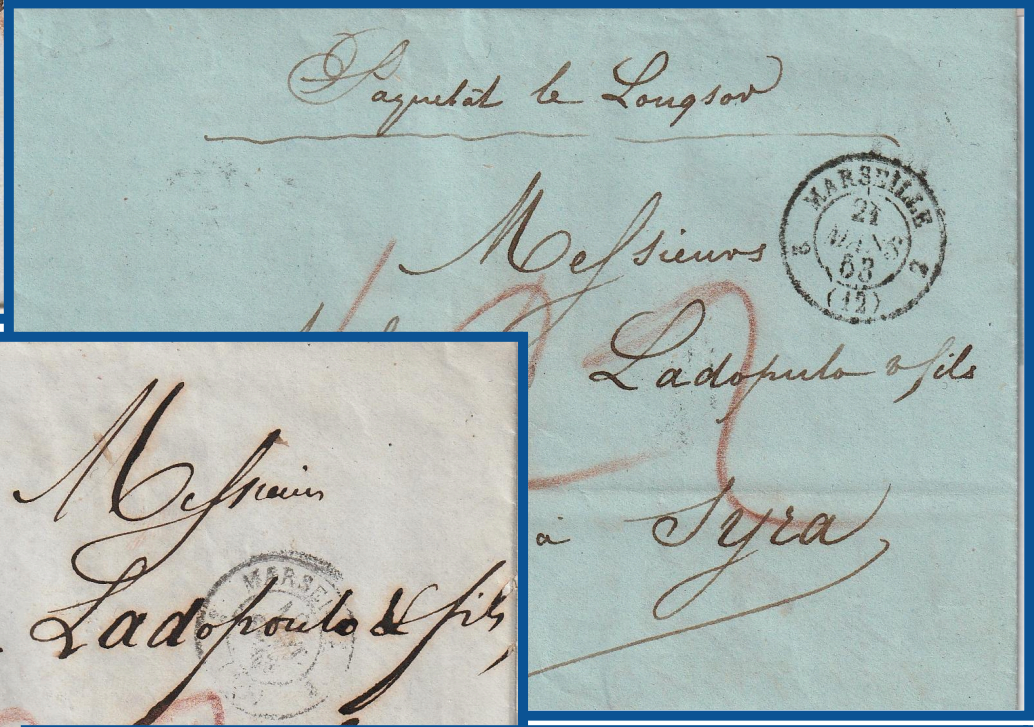 Paquebât le Louqsor
MARSEILLE
21
MARS
53
(12)
2 2
Messieurs
Ladopulo & fils
à Syra
Messieurs
Ladopoulo & fils
MARSE